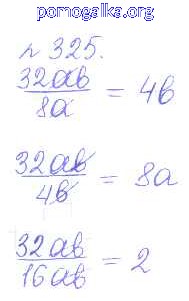 pomogalka.org
№ 325.
32ab/8a = 4b
32ab/4b = 8a
32ab/16ab = 2